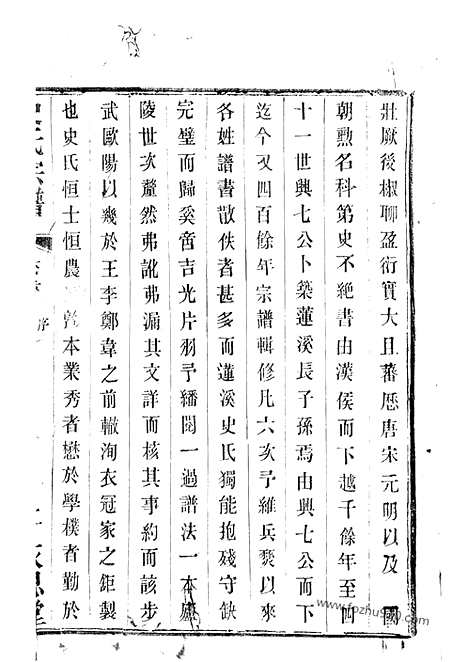 壯厥後椒聊盈衍實大且蕃歷唐宋元明以及國
朝勲名科第史不絕書由漢侯而下越千餘年至四
十一世興七公卜築蓮溪長子孫焉由興七公而下
迄今又四百餘年宗譜輯修凡六次予維兵燹以來
各姓譜書散佚者甚多而蓮溪史氏獨能抱殘守缺
完璧而歸奚啻吉光片羽予繙閱一過譜法一本廬
陵世次釐然弗訛弗漏其文詳而核其事約而該步
武歐陽以幾於王李鄭韋之前轍洵衣冠家之鉅製
也史氏恒士恒農敦本業秀者懋於學樸者勤於
氏宗譜
序
www.fozhu920.com